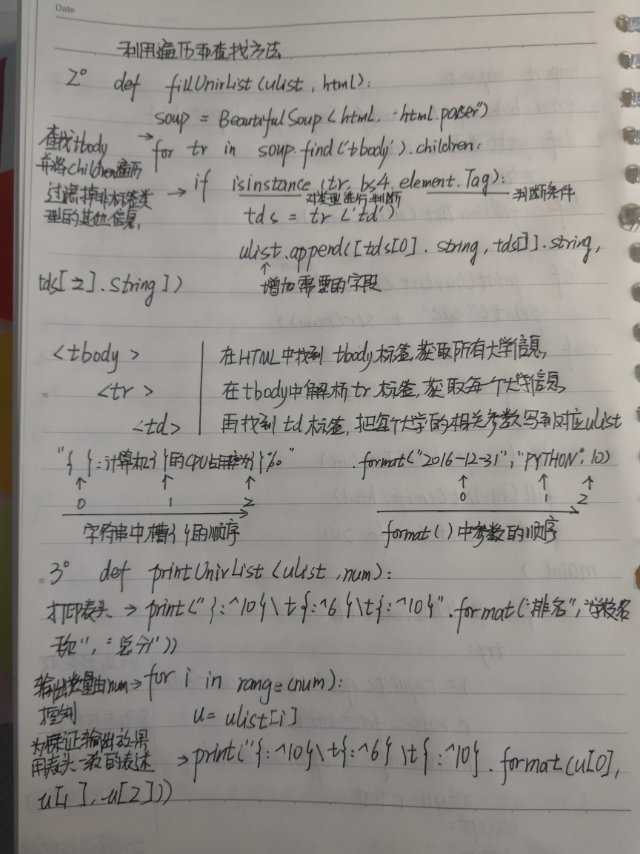 Date
利用遍历和查找方法
2° def fillUnivList(ulist, html):
soup = BeautifulSoup(html, "html.parser")
查找tbody → for tr in soup.find('tbody').children:
并将children遍历
过滤掉非标签类 → if isinstance(tr, bs4.element.Tag): 判断条件
型的其他信息, 对类型进行判断
tds = tr('td')
ulist.append([tds[0].string, tds[1].string,
tds[2].string])
↑增加需要的字段
<tbody> 在HTML中找到 tbody标签,获取所有大学信息,
<tr> 在tbody中解析tr标签,获取每个大学信息,
<td> 再找到td标签,把每个大学的相关参数写到对应ulist
"{ }:计算机{ }的CPU占用率为{ }%" .format("2016-12-31", "PYTHON", 10)
0 1 2 0 1 2
字符串中槽{ }的顺序 format()中参数的顺序
3° def printUnivList(ulist, num):
打印表头 → print("{:^10}\t{:^6}\t{:^10}".format("排名", "学校名
称", "总分"))
输出数量由num → for i in range(num):
控制 u = ulist[i]
为保证输出效果
用表头一致的表述 → print("{:^10}\t{:^6}\t{:^10}.format(u[0],
u[1], u[2]))